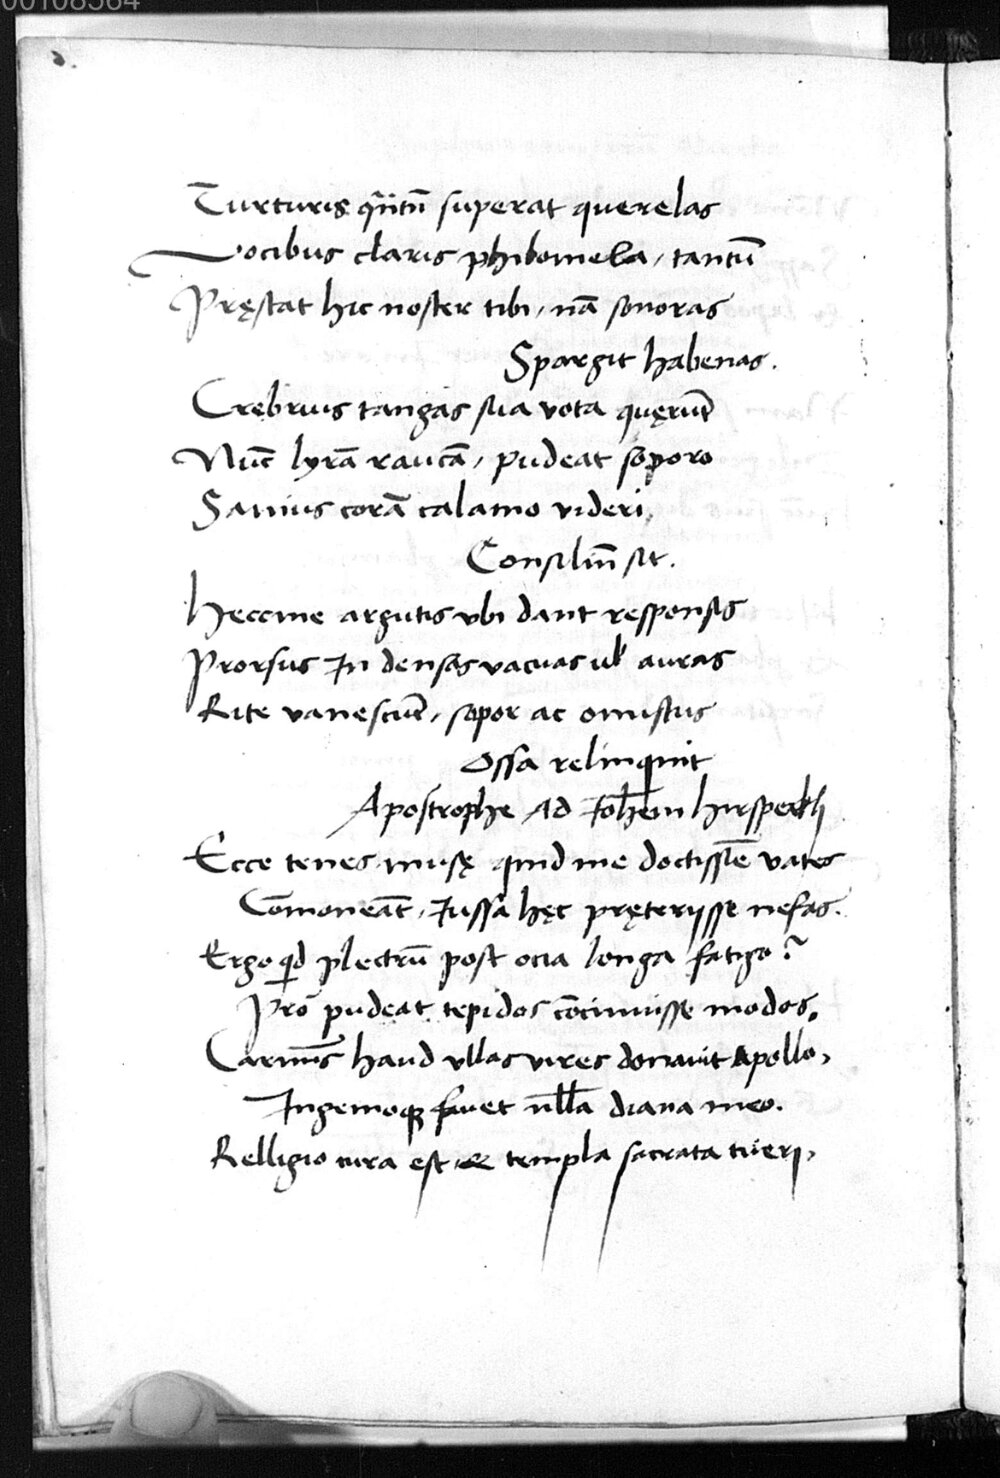 00108564
Turturis qũntũ superat querelas
Vocibus claris philomela, tantũ
Pręstat hic noster tibi, nã sonoras
Spargit habenas.
Crebrius tangas sua vota quęrũt
Nũc lyrã raucã, pudeat soporo
Sanius corã calamo videri,
Consiliũ sit.
Heccine argutis vbi dant responsis
Prorsus In densas vacuas ul auras
Rite vanescũt, sopor ac omistus
Ossa relinquit
Apostrophe Ad Iohem hirsperkh
Ecce tenes musę quid me doctissīe vates
Cōmoneāt, Iussa hęc pręterijsse nefas.
Ergo qd plectrũ post ocia longa fatigo?
Pro pudeat tepidos cōcinuisse modos.
Carminis haud vllas vires donauit Apollo,
Ingenioq fauet nlla diana meo.
Relligio cura est & templa sacrata tueri,